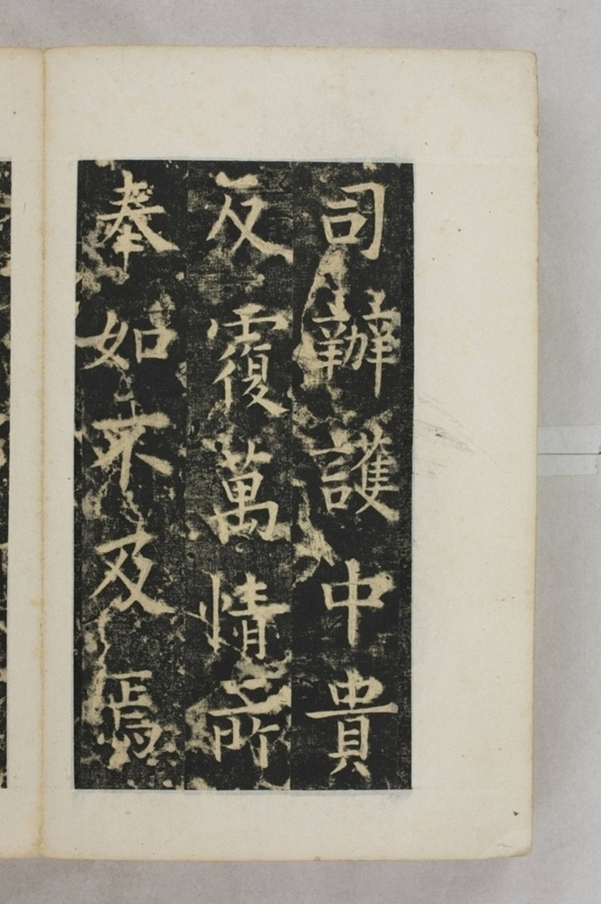 司辦護中貴
反覆萬情所
奉如不及焉